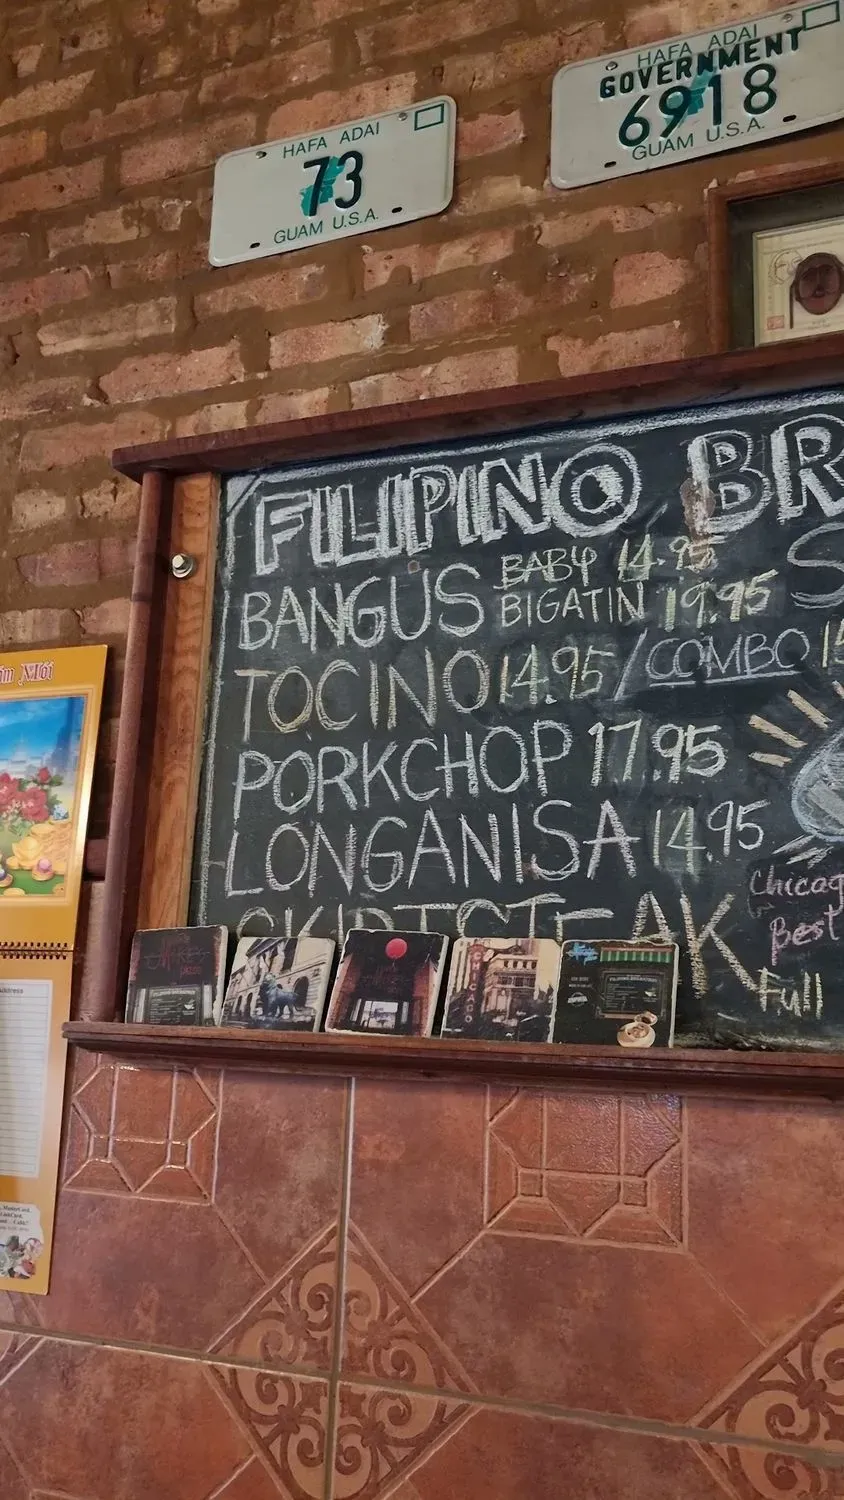 HAFA ADAI
73
GUAM U.S.A.
HAFA ADAI
GOVERNMENT
6918
GUAM U.S.A.
FILIPINO BR
BANGUS BABY 14.95
BIGATIN 19.95
TOCINO 14.95 / COMBO
PORKCHOP 17.95
LONGANISA 14.95
SKIRTSTEAK
Chicag
Best
Full
Mới
ddress
CHICAGO